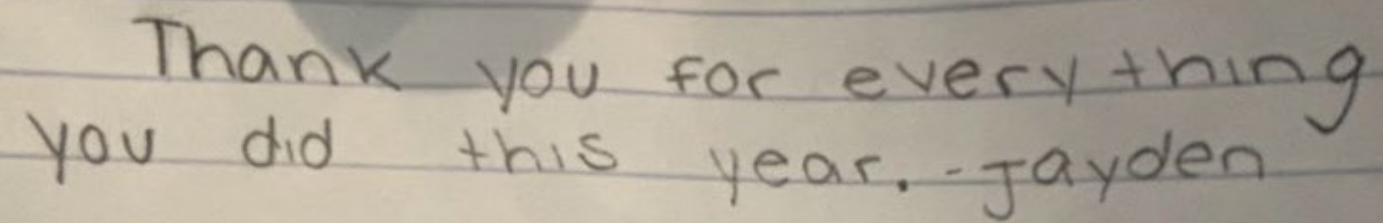 Thank you for everything
you did this year. -Jayden